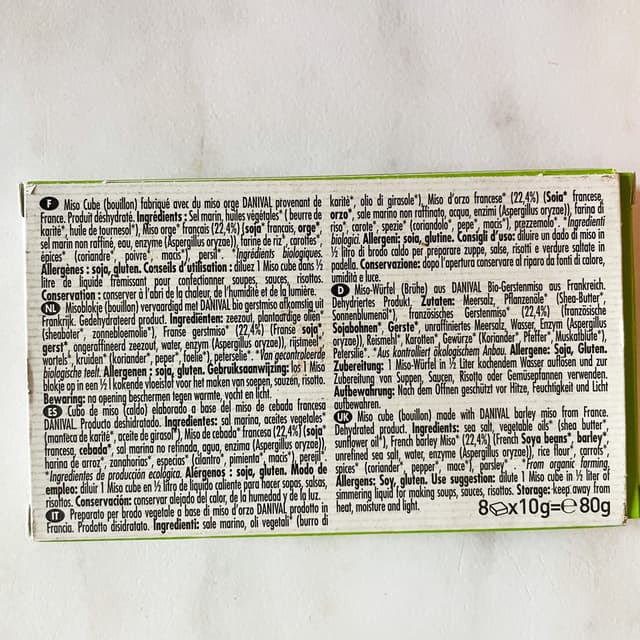 F Miso Cube (bouillon) fabriqué avec du miso orge DANIVAL provenant de
France. Produit déshydraté. Ingrédients : Sel marin, huiles végétales* (beurre de
karité*, huile de tournesol*), Miso orge* français (22,4%) (soja* français, orge*,
sel marin non raffiné, eau, enzyme (Aspergillus oryzae)), farine de riz*, carottes*,
épices* (coriandre*, poivre*, macis*), persil*. *Ingrédients biologiques.
Allergènes : soja, gluten. Conseils d'utilisation : diluez 1 Miso cube dans ½
litre de liquide frémissant pour confectionner soupes, sauces, risottos.
Conservation : conserver à l'abri de la chaleur, de l'humidité et de la lumière.
NL Misoblokje (bouillon) vervaardigd met DANIVAL bio gerstmiso afkomstig uit
Frankrijk. Gedehydreerd product. Ingrediënten: zeezout, plantaardige oliën*
(sheaboter*, zonnebloemolie*), Franse gerstmiso* (22,4%) (Franse soja*,
gerst*, ongeraffineerd zeezout, water, enzym (Aspergillus oryzae)), rijstmeel*,
wortels*, kruiden* (koriander*, peper*, foelie*), peterselie*. *Van gecontroleerde
biologische teelt. Allergenen : soja, gluten. Gebruiksaanwijzing: los 1 Miso
blokje op in een ½ l kokende vloeistof voor het maken van soepen, sauzen, risotto.
Bewaring: na opening beschermen tegen warmte, vocht en licht.
ES Cubo de miso (caldo) elaborado a base del miso de cebada francesa
DANIVAL Producto deshidratado. Ingredientes: sal marina, aceites vegetales*
(manteca de karité*, aceite de girasol*), Miso de cebada* francesa (22,4%) (soja*
francesa, cebada*, sal marina no refinada, agua, enzima (Aspergillus oryzae)),
harina de arroz*, zanahorias*, especias* (cilantro*, pimienta*, macis*), perejil*.
*Ingredientes de producción ecológica. Alérgenos : soja, gluten. Modo de
empleo: diluir 1 Miso cube en ½ litro de líquido caliente para hacer sopas, salsas,
risottos. Conservación: conservar alejado del calor, de la humedad y de la luz.
IT Preparato per brodo vegetale a base di miso d'orzo DANIVAL prodotto in
Francia. Prodotto disidratato. Ingredienti: sale marino, oli vegetali* (burro di
karité*, olio di girasole*), Miso d'orzo francese* (22,4%) (Soia* francese,
orzo*, sale marino non raffinato, acqua, enzimi (Aspergillus oryzae)), farina di
riso*, carote*, spezie* (coriandolo*, pepe*, macis*), prezzemolo*. *Ingredienti
biologici. Allergeni: soia, glutine. Consigli d'uso: diluire un dado di miso in
½ litro di brodo caldo per preparare zuppe, salse, risotti e verdure saltate in
padella. Conservazione: dopo l'apertura conservare al riparo da fonti di calore,
umidità e luce.
D Miso-Würfel (Brühe) aus DANIVAL Bio-Gerstenmiso aus Frankreich.
Dehydriertes Produkt. Zutaten: Meersalz, Pflanzenöle* (Shea-Butter*,
Sonnenblumenöl*), französisches Gerstenmiso* (22,4%) (französische
Sojabohnen*, Gerste*, unraffiniertes Meersalz, Wasser, Enzym (Aspergillus
oryzae)), Reismehl*, Karotten*, Gewürze* (Koriander*, Pfeffer*, Muskatblüte*),
Petersilie*. *Aus kontrolliert ökologischem Anbau. Allergene: Soja, Gluten.
Zubereitung: 1 Miso-Würfel in ½ Liter kochendem Wasser auflösen und zur
Zubereitung von Suppen, Saucen, Risotto oder Gemüsepfannen verwenden.
Aufbewahrung: Nach dem Öffnen geschützt vor Hitze, Feuchtigkeit und Licht
aufbewahren.
UK Miso cube (bouillon) made with DANIVAL barley miso from France.
Dehydrated product. Ingredients: sea salt, vegetable oils* (shea butter*,
sunflower oil*), French barley Miso* (22,4%) (French Soya beans*, barley*,
unrefined sea salt, water, enzyme (Aspergillus oryzae)), rice flour*, carrots*,
spices* (coriander*, pepper*, mace*), parsley*. *From organic farming.
Allergens: Soy, gluten. Use suggestion: dilute 1 Miso cube in ½ liter of
simmering liquid for making soups, sauces, risottos. Storage: keep away from
heat, moisture and light.
8 x10g=e80g